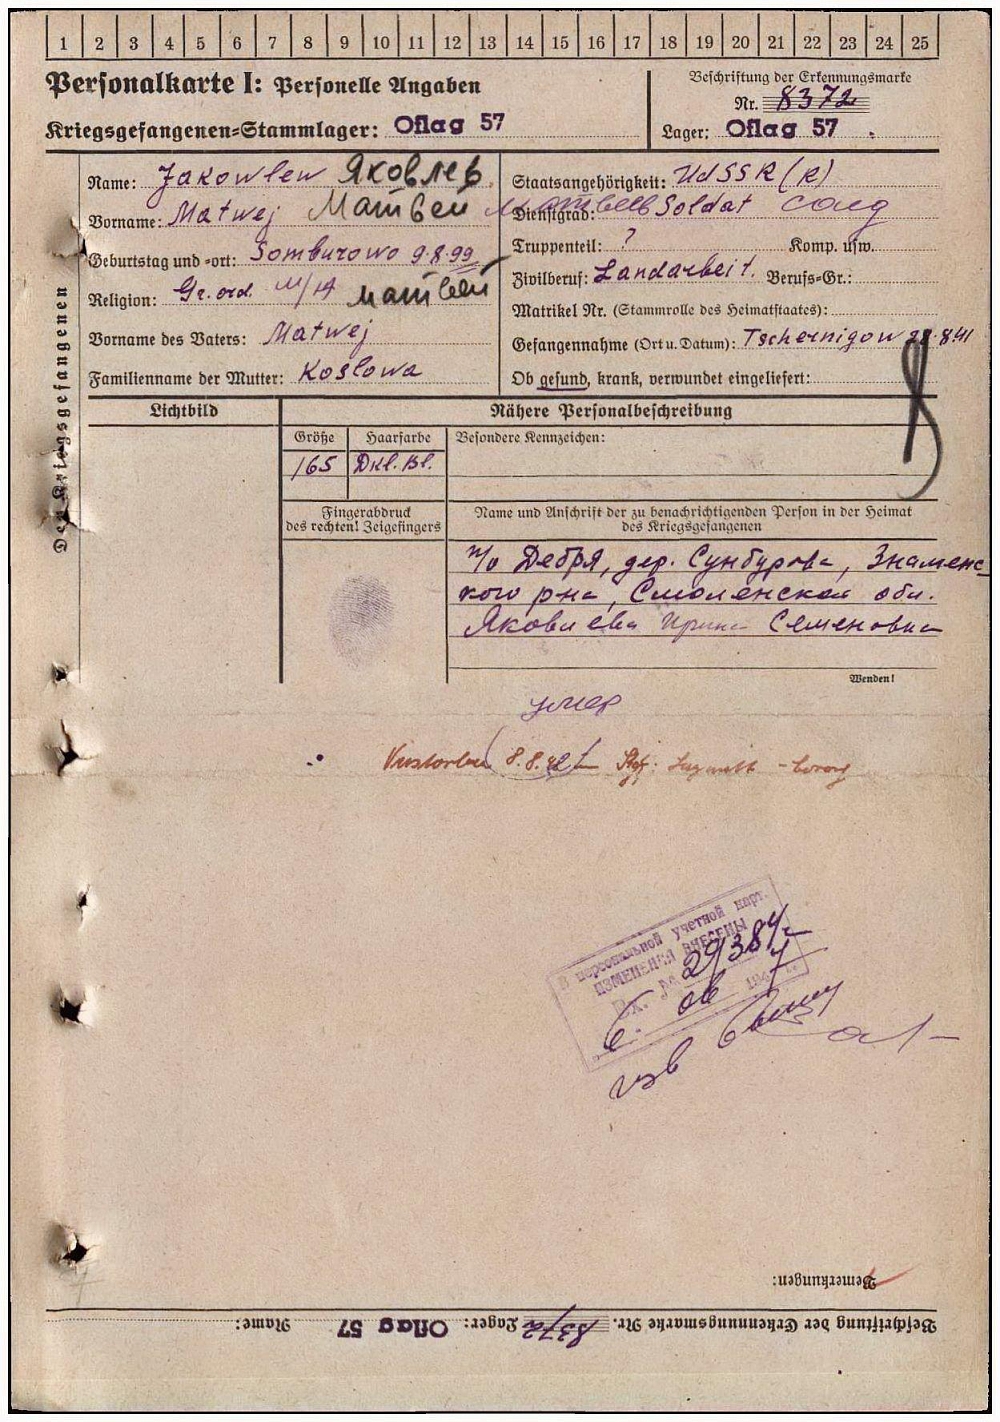 1 2 3 4 5 6 7 8 9 10 11 12 13 14 15 16 17 18 19 20 21 22 23 24 25
Personalkarte I: Personelle Angaben
Kriegsgefangenen-Stammlager: Oflag 57
Beschriftung der Erkennungsmarke
Nr. 8372
Lager: Oflag 57
Des Kriegsgefangenen
Name: Jakowlew Яковлев
Vorname: Matwej Матвей Матвеев
Geburtstag und -ort: Somburowo 9.8.99
Religion: Gr. ord. Матвей
Vorname des Vaters: Matwej
Familienname der Mutter: Koslowa
Staatsangehörigkeit: UdSSR (R)
Dienstgrad: Soldat солд
Truppenteil: ? Komp. usw.
Zivilberuf: Landarbeit. Berufs-Gr.:
Matrikel Nr. (Stammrolle des Heimatstaates):
Gefangennahme (Ort u. Datum): Tschernigow 28.8.41
Ob gesund, krank, verwundet eingeliefert:
Lichtbild
Nähere Personalbeschreibung
Größe Haarfarbe Besondere Kennzeichen:
165 Dkl. Bl.
Fingerabdruck
des rechten! Zeigefingers
Name und Anschrift der zu benachrichtigenden Person in der Heimat
des Kriegsgefangenen
п/о Дебря, дер. Сунбурова, Знаменс-
кого р-на, Смоленской обл.
Яковлева Ирина Семеновна
Wenden!
умер
Verstorben 8.8.42
В персональной учетной карт.
ИЗМЕНЕНИЯ ВНЕСЕНЫ
Bemerkungen:
Beschriftung der Erkennungsmarke Nr. 8372 Lager: Oflag 57 Name: